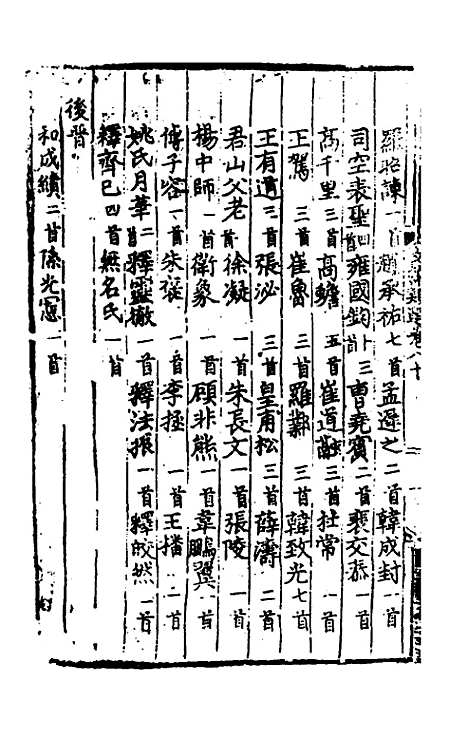 羅昭諫一首趙承祐七首孟遲之二首韓成封一首
司空表聖四首雍國鈞三首曹堯賓二首裴交泰一首
高千里三首高蟾五首崔道融三首杜常一首
王駕三首崔魯三首羅鄴三首韓致光七首
王有道三首張泌三首皇甫松三首薛濤二首
君山父老一首徐凝一首朱長文一首張陵一首
楊中師一首衛象一首顧非熊一首韋鵬翼一首
傅子容一首朱褒一首李拯一首王播二首
姚氏月華二首釋靈徹一首釋法振一首釋皎然一首
釋齊己四首無名氏一首
後晉
和成績二首孫光憲一首